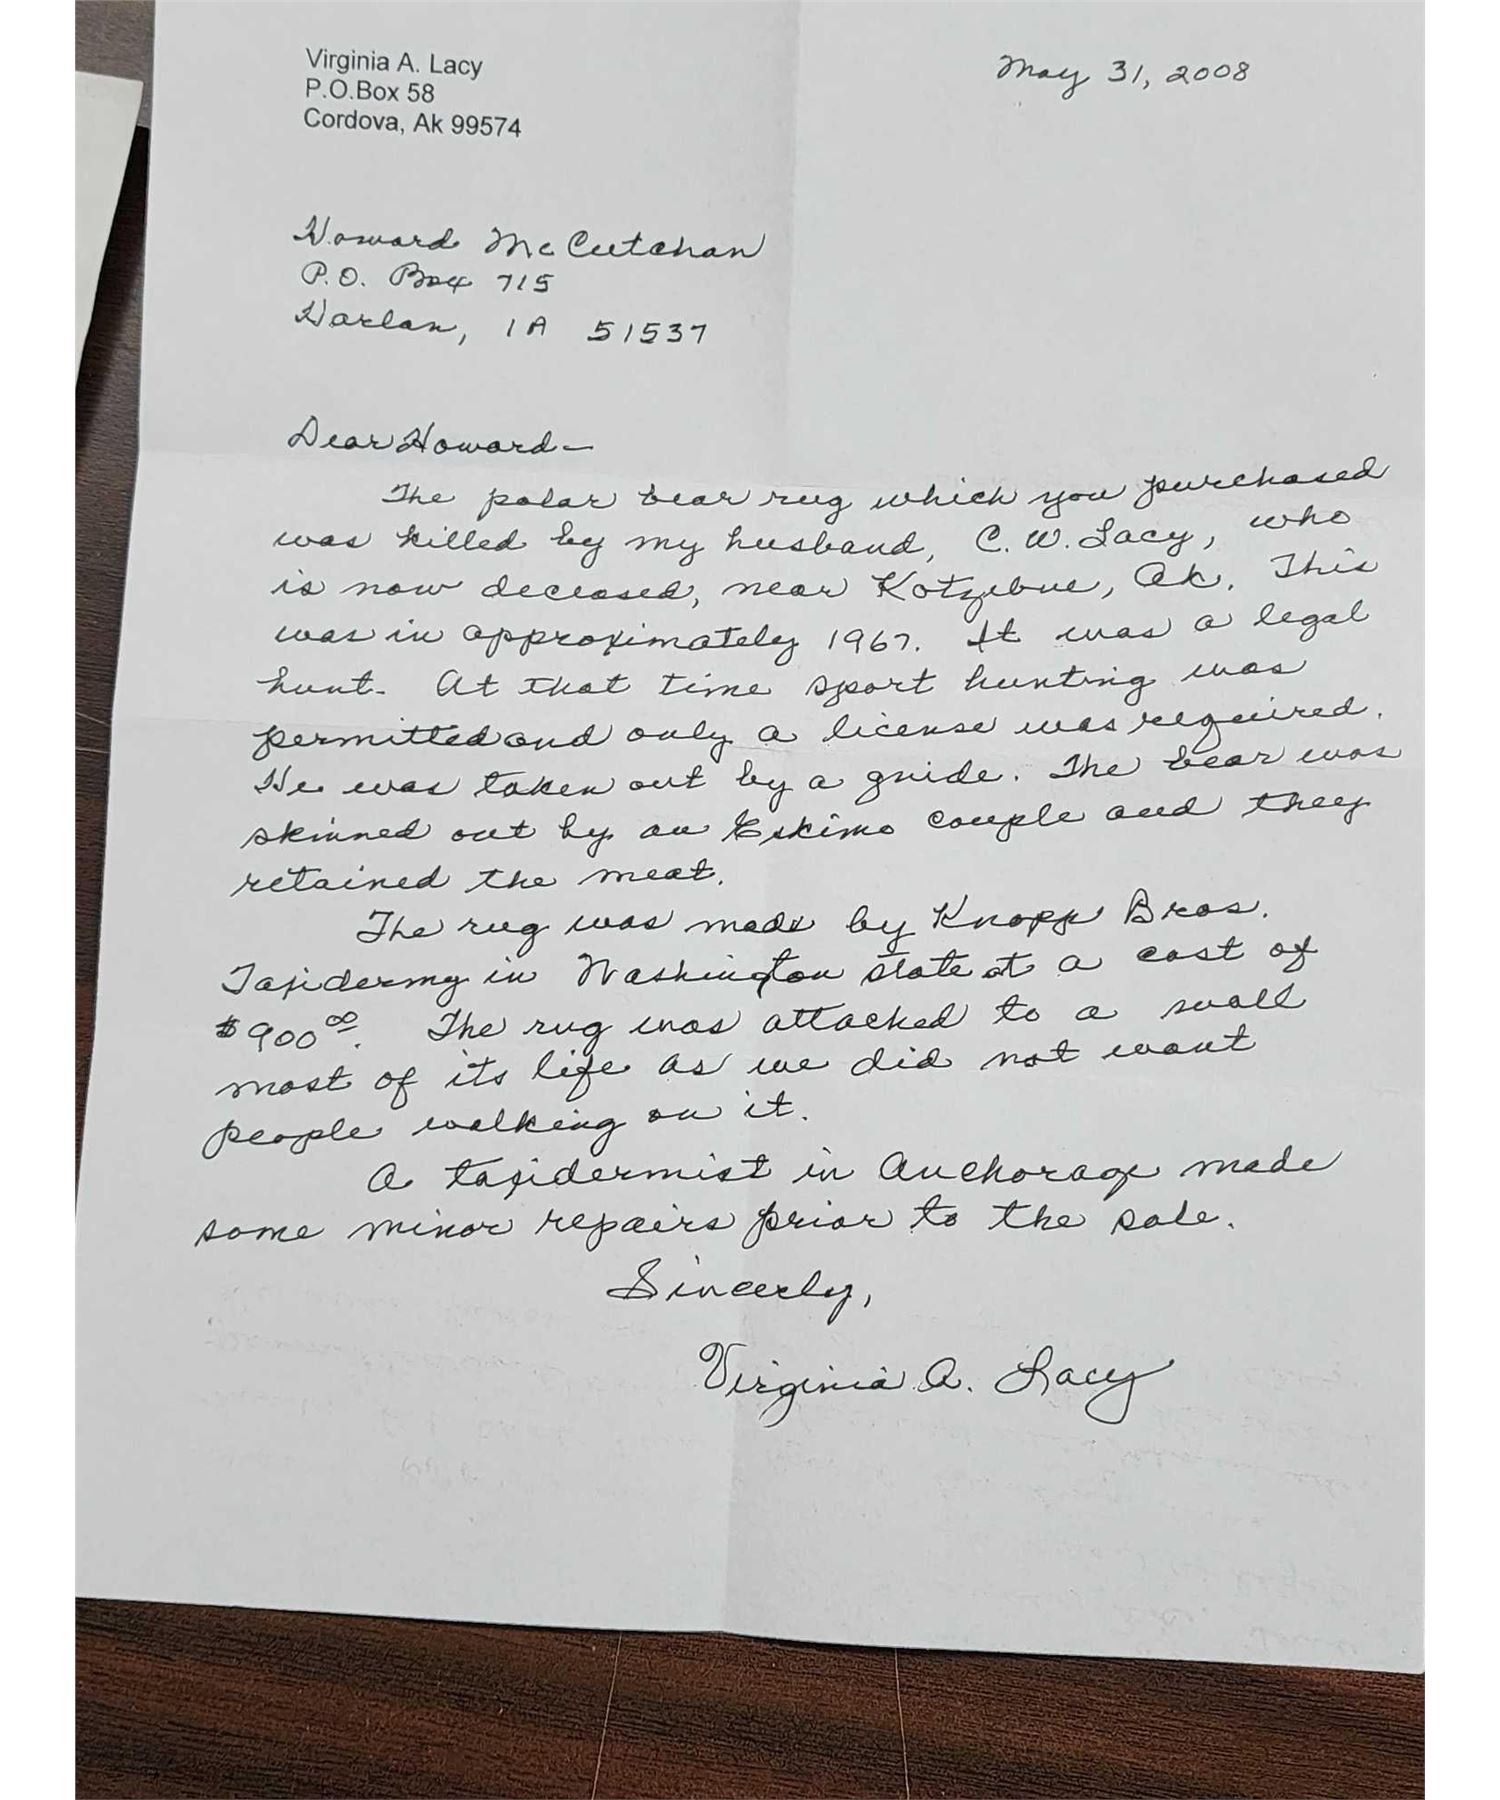 Virginia A. Lacy
P.O.Box 58
Cordova, Ak 99574
May 31, 2008
Howard McCutchan
P.O. Box 715
Harlan, IA 51537
Dear Howard—
The polar bear rug which you purchased
was killed by my husband, C. W. Lacy, who
is now deceased, near Kotzebue, Ak. This
was in approximately 1967. It was a legal
hunt. At that time sport hunting was
permitted and only a license was required.
He was taken out by a guide. The bear was
skinned out by an Eskimo couple and they
retained the meat.
The rug was made by Knopp Bros.
Taxidermy in Washington state at a cost of
$900.00. The rug was attached to a wall
most of its life as we did not want
people walking on it.
A taxidermist in Anchorage made
some minor repairs prior to the sale.
Sincerly,
Virginia A. Lacy